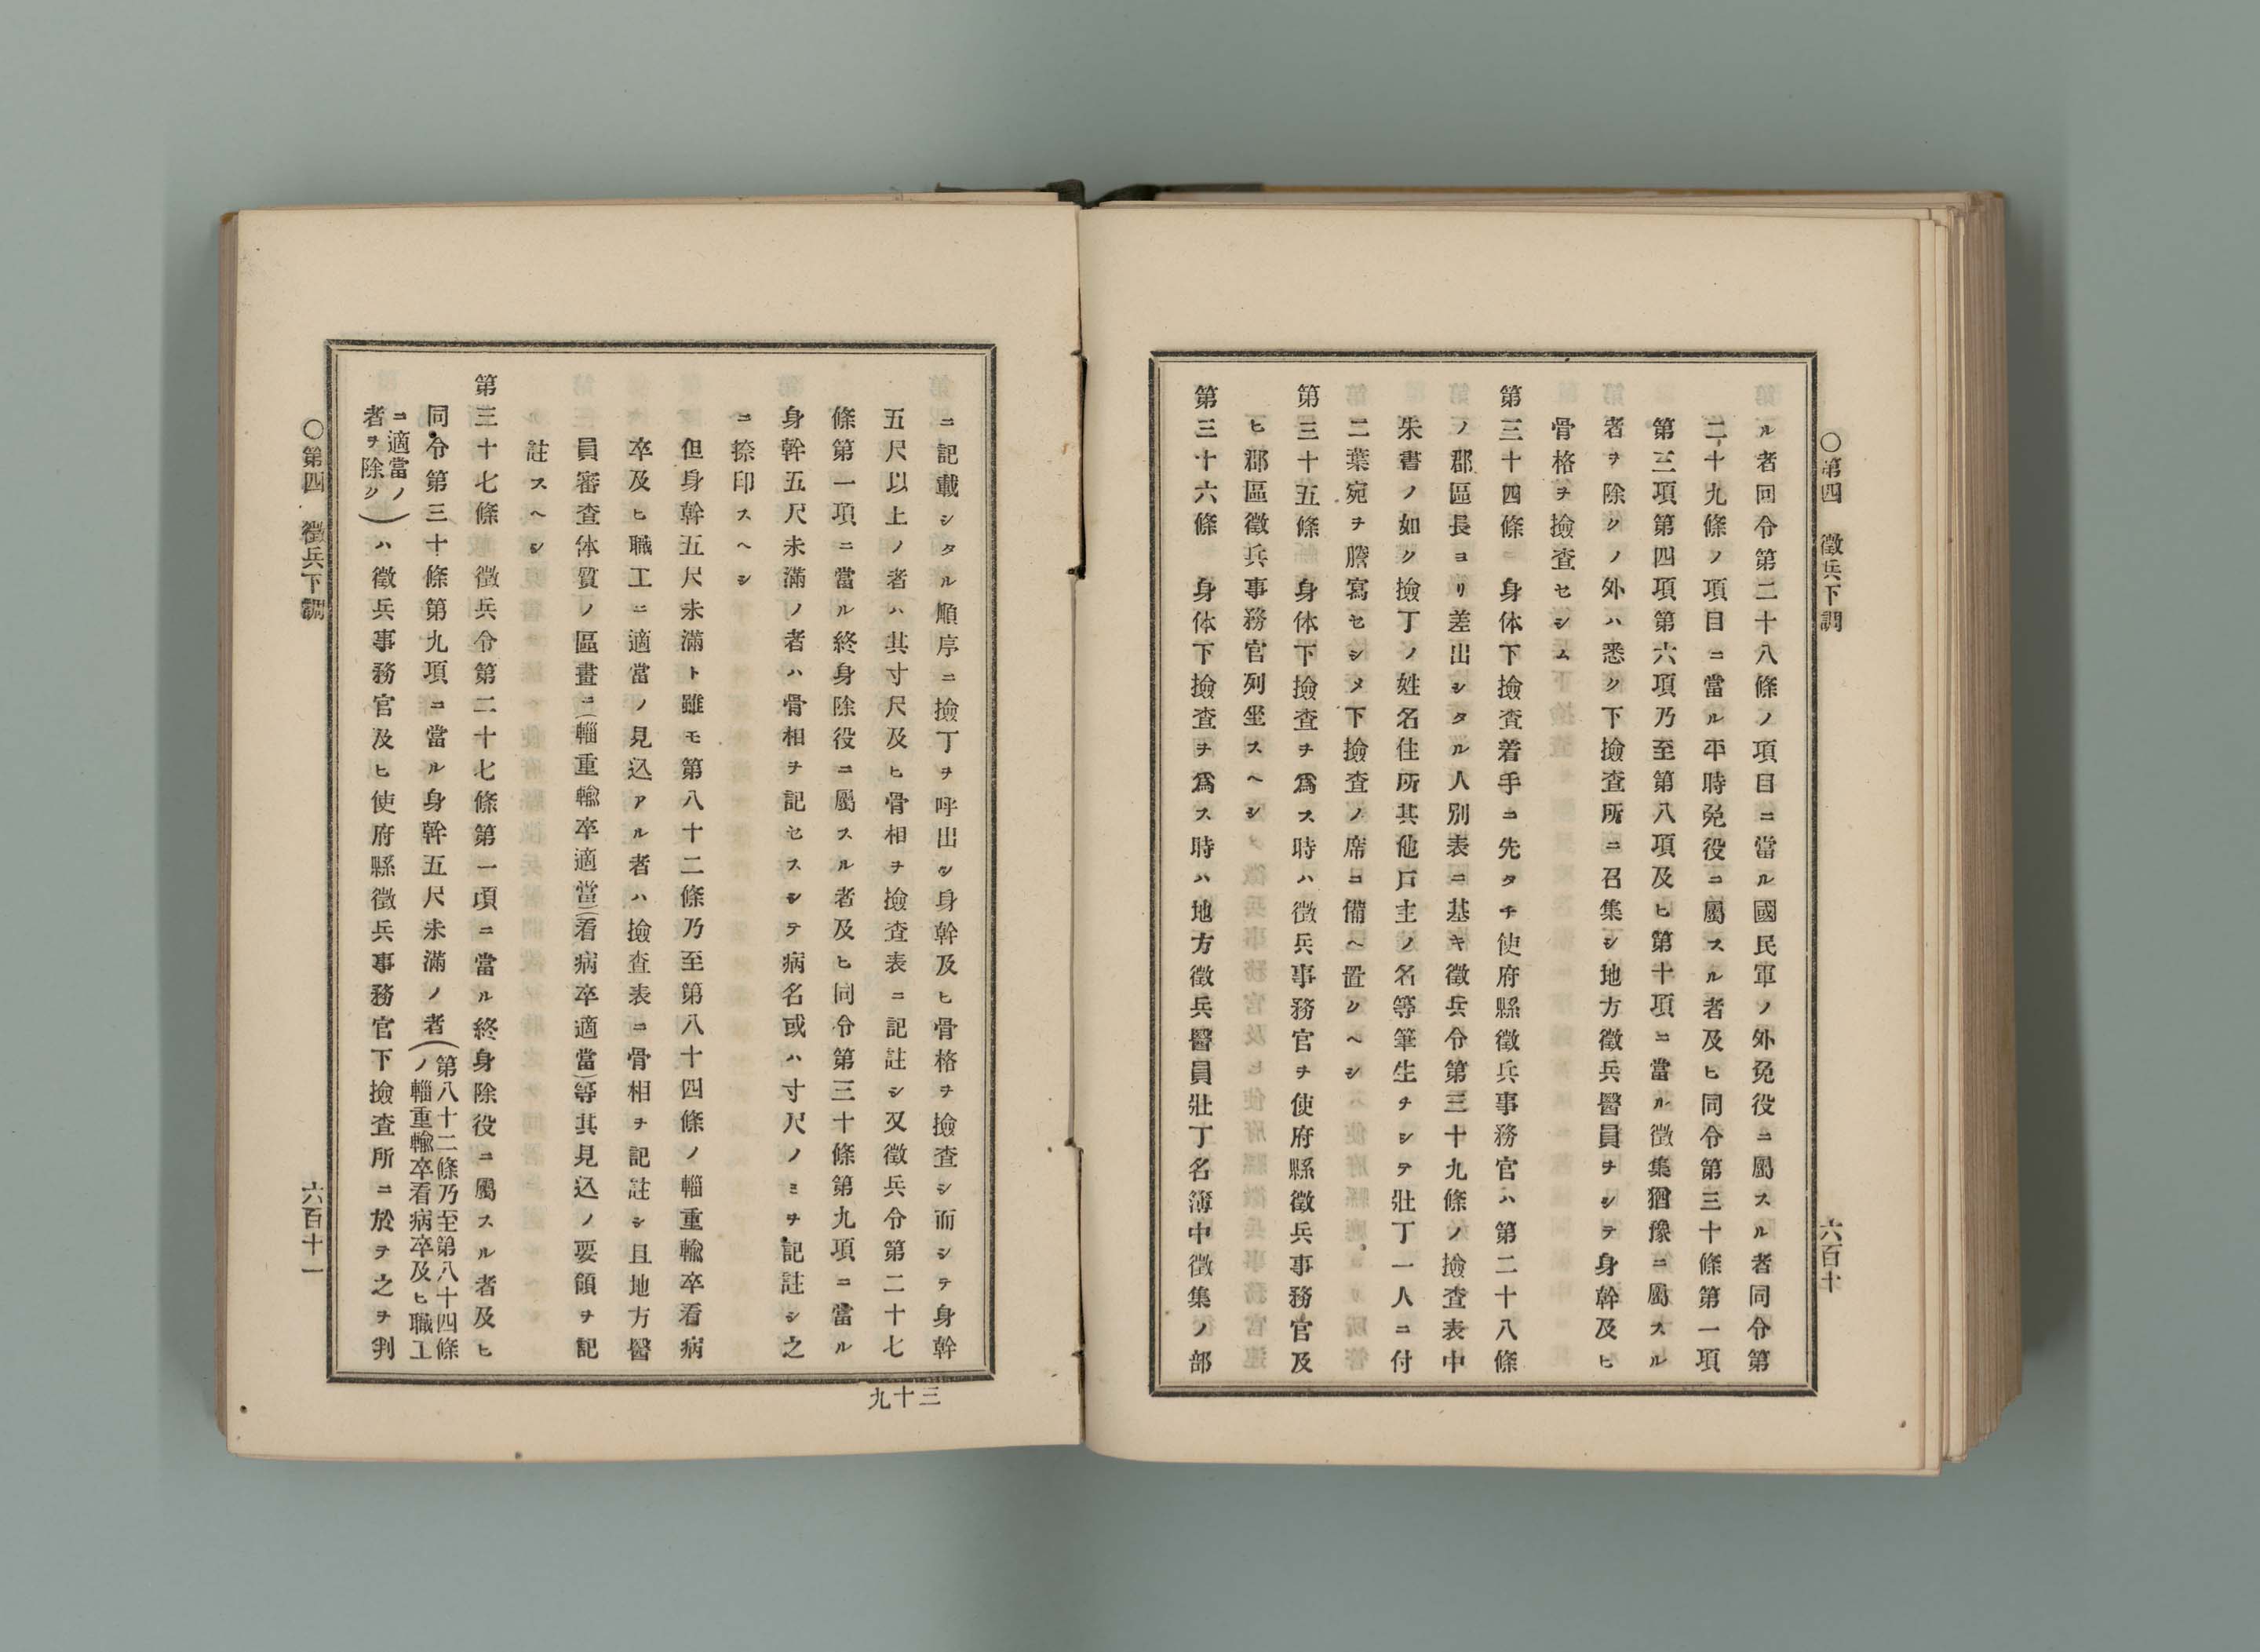 ○第四　徵兵下調
六百十
ル者同令第二十八條ノ項目ニ當ル國民軍ノ外免役ニ屬スル者同令第
二十九條ノ項目ニ當ル平時免役ニ屬スル者及ヒ同令第三十條第一項
第三項第四項第六項乃至第八項及ヒ第十項ニ當ル徵集猶豫ニ屬スル
者ヲ除クノ外ハ悉ク下撿査所ニ召集シ地方徵兵醫員ヲシテ身幹及ヒ
骨格ヲ撿査セシム
第三十四條　身体下撿査着手ニ先タチ使府縣徵兵事務官ハ第二十八條
ノ郡區長ヨリ差出シタル人別表ニ基キ徵兵令第三十九條ノ撿査表中
朱書ノ如ク撿丁ノ姓名住所其他戶主ノ名等筆生ヲシテ壯丁一人ニ付
二葉宛ヲ謄寫セシメ下撿査ノ席ニ備ヘ置クヘシ
第三十五條　身体下撿査ヲ爲ス時ハ徵兵事務官ヲ使府縣徵兵事務官及
ヒ郡區徵兵事務官列坐スヘシ
第三十六條　身体下撿査ヲ爲ス時ハ地方徵兵醫員壯丁名簿中徵集ノ部
ニ記載シタル順序ニ撿丁ヲ呼出シ身幹及ヒ骨格ヲ撿査シ而シテ身幹
五尺以上ノ者ハ其寸尺及ヒ骨相ヲ撿査表ニ記註シ又徵兵令第二十七
條第一項ニ當ル終身除役ニ屬スル者及ヒ同令第三十條第九項ニ當ル
身幹五尺未滿ノ者ハ骨相ヲ記セスシテ病名或ハ寸尺ノミヲ記註シ之
ニ捺印スヘシ
但身幹五尺未滿ト雖モ第八十二條乃至第八十四條ノ輜重輸卒看病
卒及ヒ職工ニ適當ノ見込アル者ハ撿査表ニ骨相ヲ記註シ且地方醫
員審查体質ノ區畫ニ(輜重輸卒適當)(看病卒適當)等其見込ノ要領ヲ記
註スヘシ
第三十七條徵兵令第二十七條第一項ニ當ル終身除役ニ屬スル者及ヒ
同令第三十條第九項ニ當ル身幹五尺未滿ノ者(第八十二條乃至第八十四條
ノ輜重輸卒看病卒及ヒ職工
ニ適當ノ
者ヲ除ク)ハ徵兵事務官及ヒ使府縣徵兵事務官下撿査所ニ於テ之ヲ判
○第四　徵兵下調
六百十一
三十九